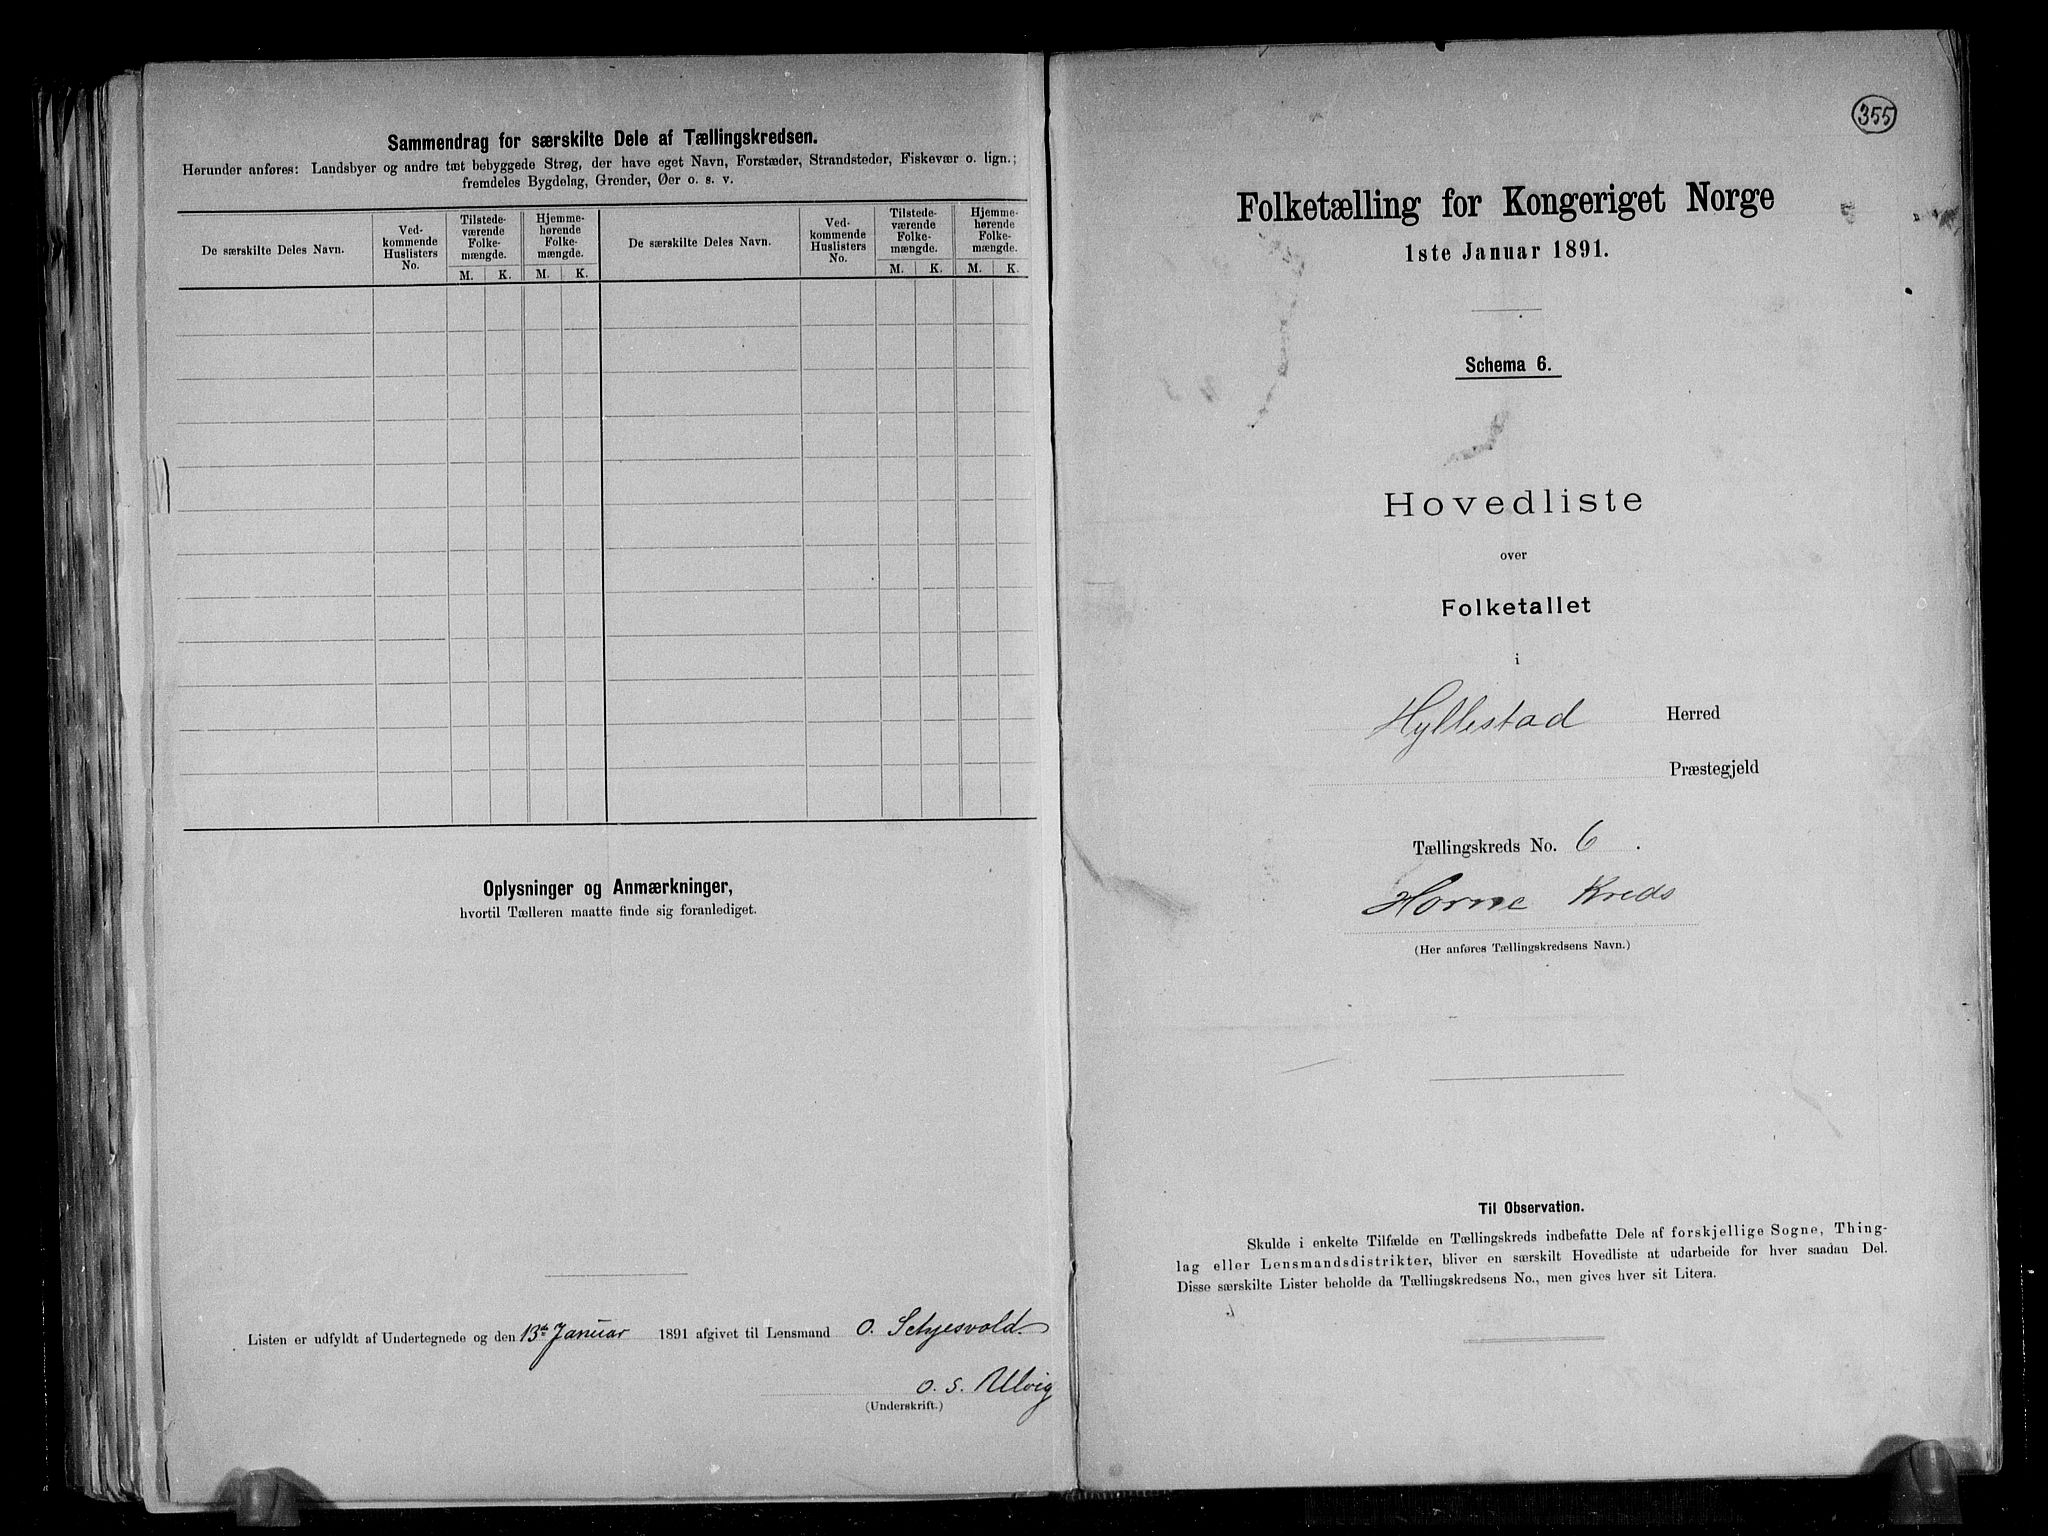 Sammendrag for særskilte Dele af Tællingskredsen.
Herunder anføres: Landsbyer og andre tæt bebyggede Strøg, der have eget Navn, Forstæder, Strandsteder, Fiskevær o. lign.;
fremdeles Bygdelag, Grender, Øer o. s. v.
De særskilte Deles Navn.
Ved-
kommende
Huslisters
No.
Tilstede-
værende
Folke-
mængde.
M. K.
Hjemme-
hørende
Folke-
mængde.
M. K.
De særskilte Deles Navn.
Ved-
kommende
Huslisters
No.
Tilstede-
værende
Folke-
mængde.
M. K.
Hjemme-
hørende
Folke-
mængde.
M. K.
Oplysninger og Anmærkninger,
hvortil Tælleren maatte finde sig foranlediget.
Listen er udfyldt af Undertegnede og den 13de Januar 1891 afgivet til Lensmand O.
O. S. Ulvig
(Underskrift.)
355
Folketælling for Kongeriget Norge
1ste Januar 1891.
Schema 6.
Hovedliste
over
Folketallet
i
Hyllestad Herred
Præstegjeld
Tællingskreds No. 6.
Horne Kreds
(Her anføres Tællingskredsens Navn.)
Til Observation.
Skulde i enkelte Tilfælde en Tællingskreds indbefatte Dele af forskjellige Sogne, Thing-
lag eller Lensmandsdistrikter, bliver en særskilt Hovedliste at udarbeide for hver saadan Del.
Disse særskilte Lister beholde da Tællingskredsens No., men gives hver sit Litera.